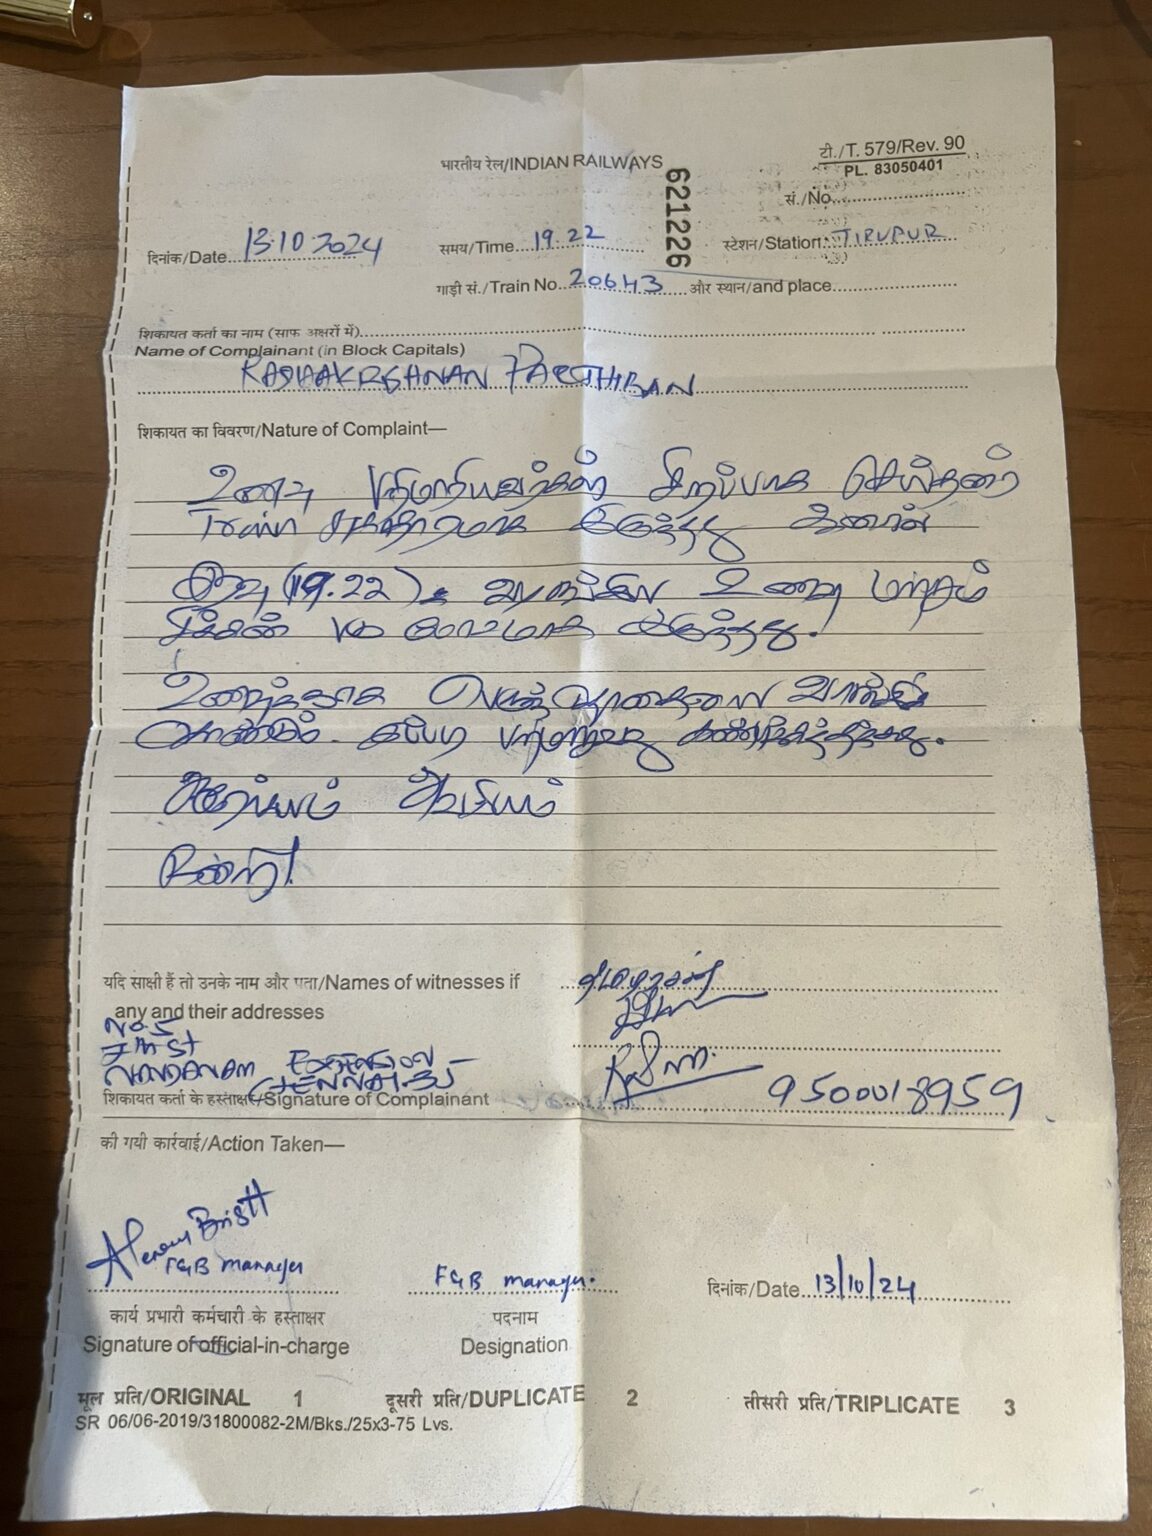 भारतीय रेल/INDIAN RAILWAYS
टी./T. 579/Rev. 90
PL. 83050401
621226
सं./No.
दिनांक/Date 13.10.2024 समय/Time 19.22 स्टेशन/Station TIRUPUR
गाड़ी सं./Train No. 20643 और स्थान/and place
शिकायत कर्ता का नाम (साफ अक्षरों में)
Name of Complainant (in Block Capitals)
PARTHIBAN
शिकायत का विवरण/Nature of Complaint—
உணவு பரிமாறியவர்கள் சிறப்பாக செய்தனர்
Train சுகாதாரமாக இருந்தது ஆனால்
இரவு (19.22) வழங்கிய உணவு மற்றும்
சிக்கன் மோசமாக இருந்தது.
உணவுக்காக
இப்படி பரிமாறுவது கண்டிக்கத்தக்கது.
அவசியம்
நன்றி!
यदि साक्षी हैं तो उनके नाम और पता/Names of witnesses if
any and their addresses
No.5
7th St
NANDANAM EXTENSION
CHENNAI-35
शिकायत कर्ता के हस्ताक्षर/Signature of Complainant
9500018959
की गयी कार्रवाई/Action Taken—
F&B manager
F&B manager.
दिनांक/Date 13/10/24
कार्य प्रभारी कर्मचारी के हस्ताक्षर
Signature of official-in-charge
पदनाम
Designation
मूल प्रति/ORIGINAL 1 दूसरी प्रति/DUPLICATE 2 तीसरी प्रति/TRIPLICATE 3
SR 06/06-2019/31800082-2M/Bks./25x3-75 Lvs.